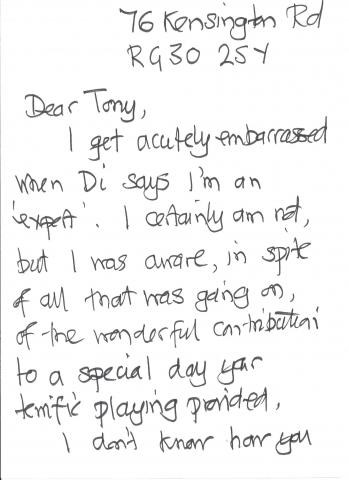 76 Kensington Rd
RG30 2SY
Dear Tony,
I get acutely embarrassed
when Di says I'm an
'expert'. I certainly am not,
but I was aware, in spite
of all that was going on,
of the wonderful contribution
to a special day your
terrific playing provided.
I don't know how you